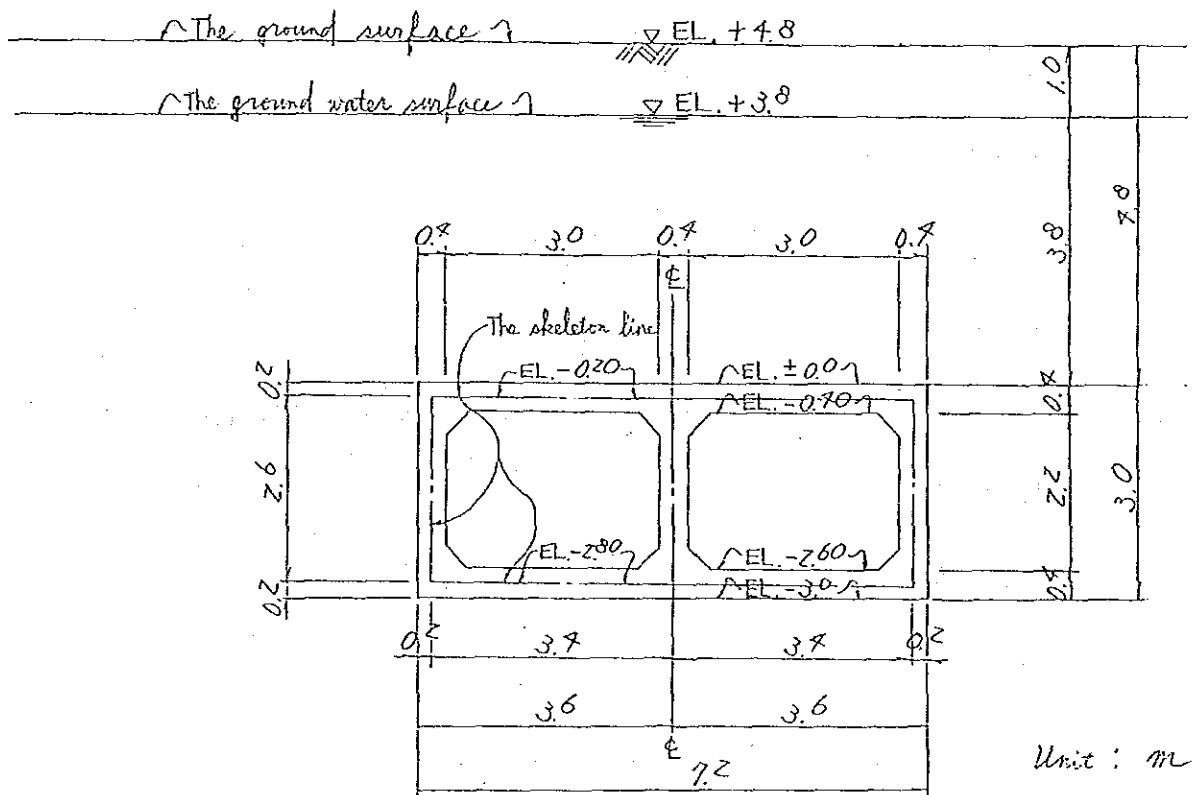 The ground surface
EL. +4.8
1.0
The ground water surface
EL. +3.8
4.8
3.8
0.4 3.0 0.4 3.0 0.4
℄
The skeleton line
0.2
EL.-0.20
EL.±0.0
0.4
EL.-0.40
2.6
2.2
3.0
EL.-2.80
EL.-2.60
0.2
EL.-3.0
0.4
0.2 3.4 3.4 0.2
3.6 3.6
℄
7.2
Unit : m